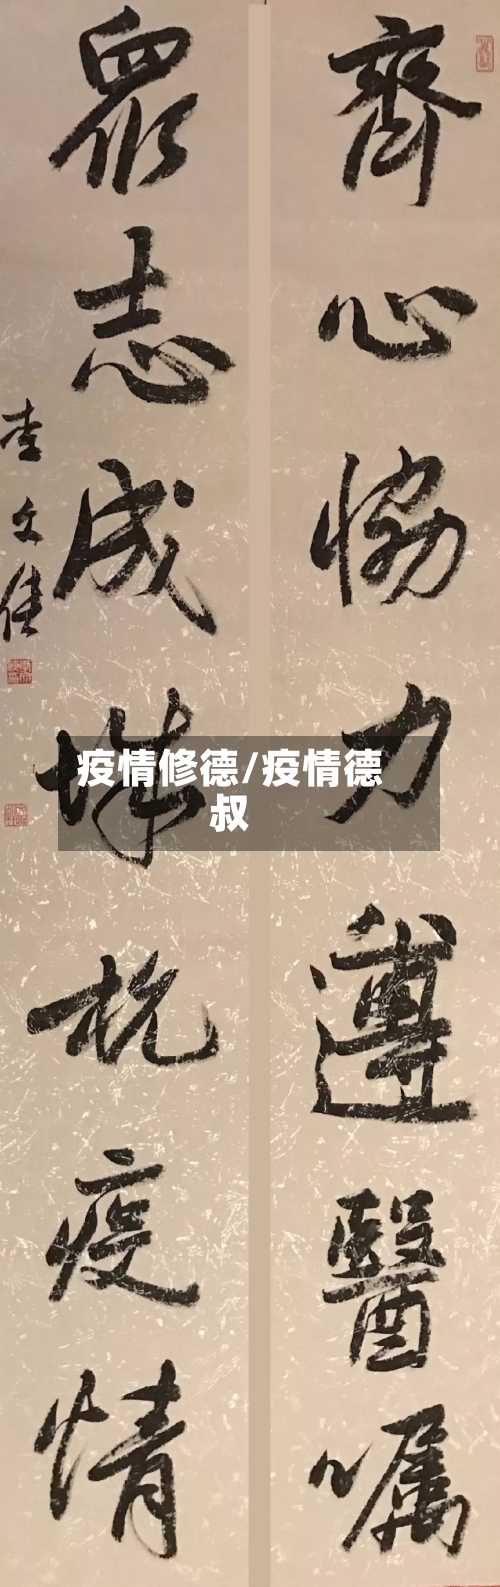 齊心協力遵醫囑
眾志成城抗疫情
李文佳
疫情修德/疫情德
叔